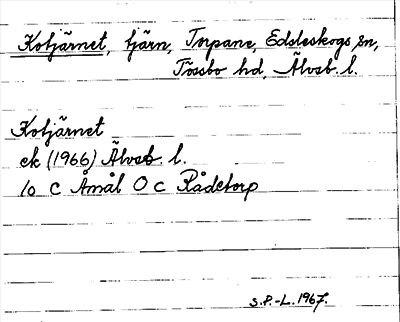 Kotjärnet, tjärn, Torpane, Edsleskogs sn,
Tössbo hd, Älvsb. l.
Kotjärnet
ek (1966) Älvsb. l.
10 C Åmål O c Rådetorp
S.P.-L. 1967.